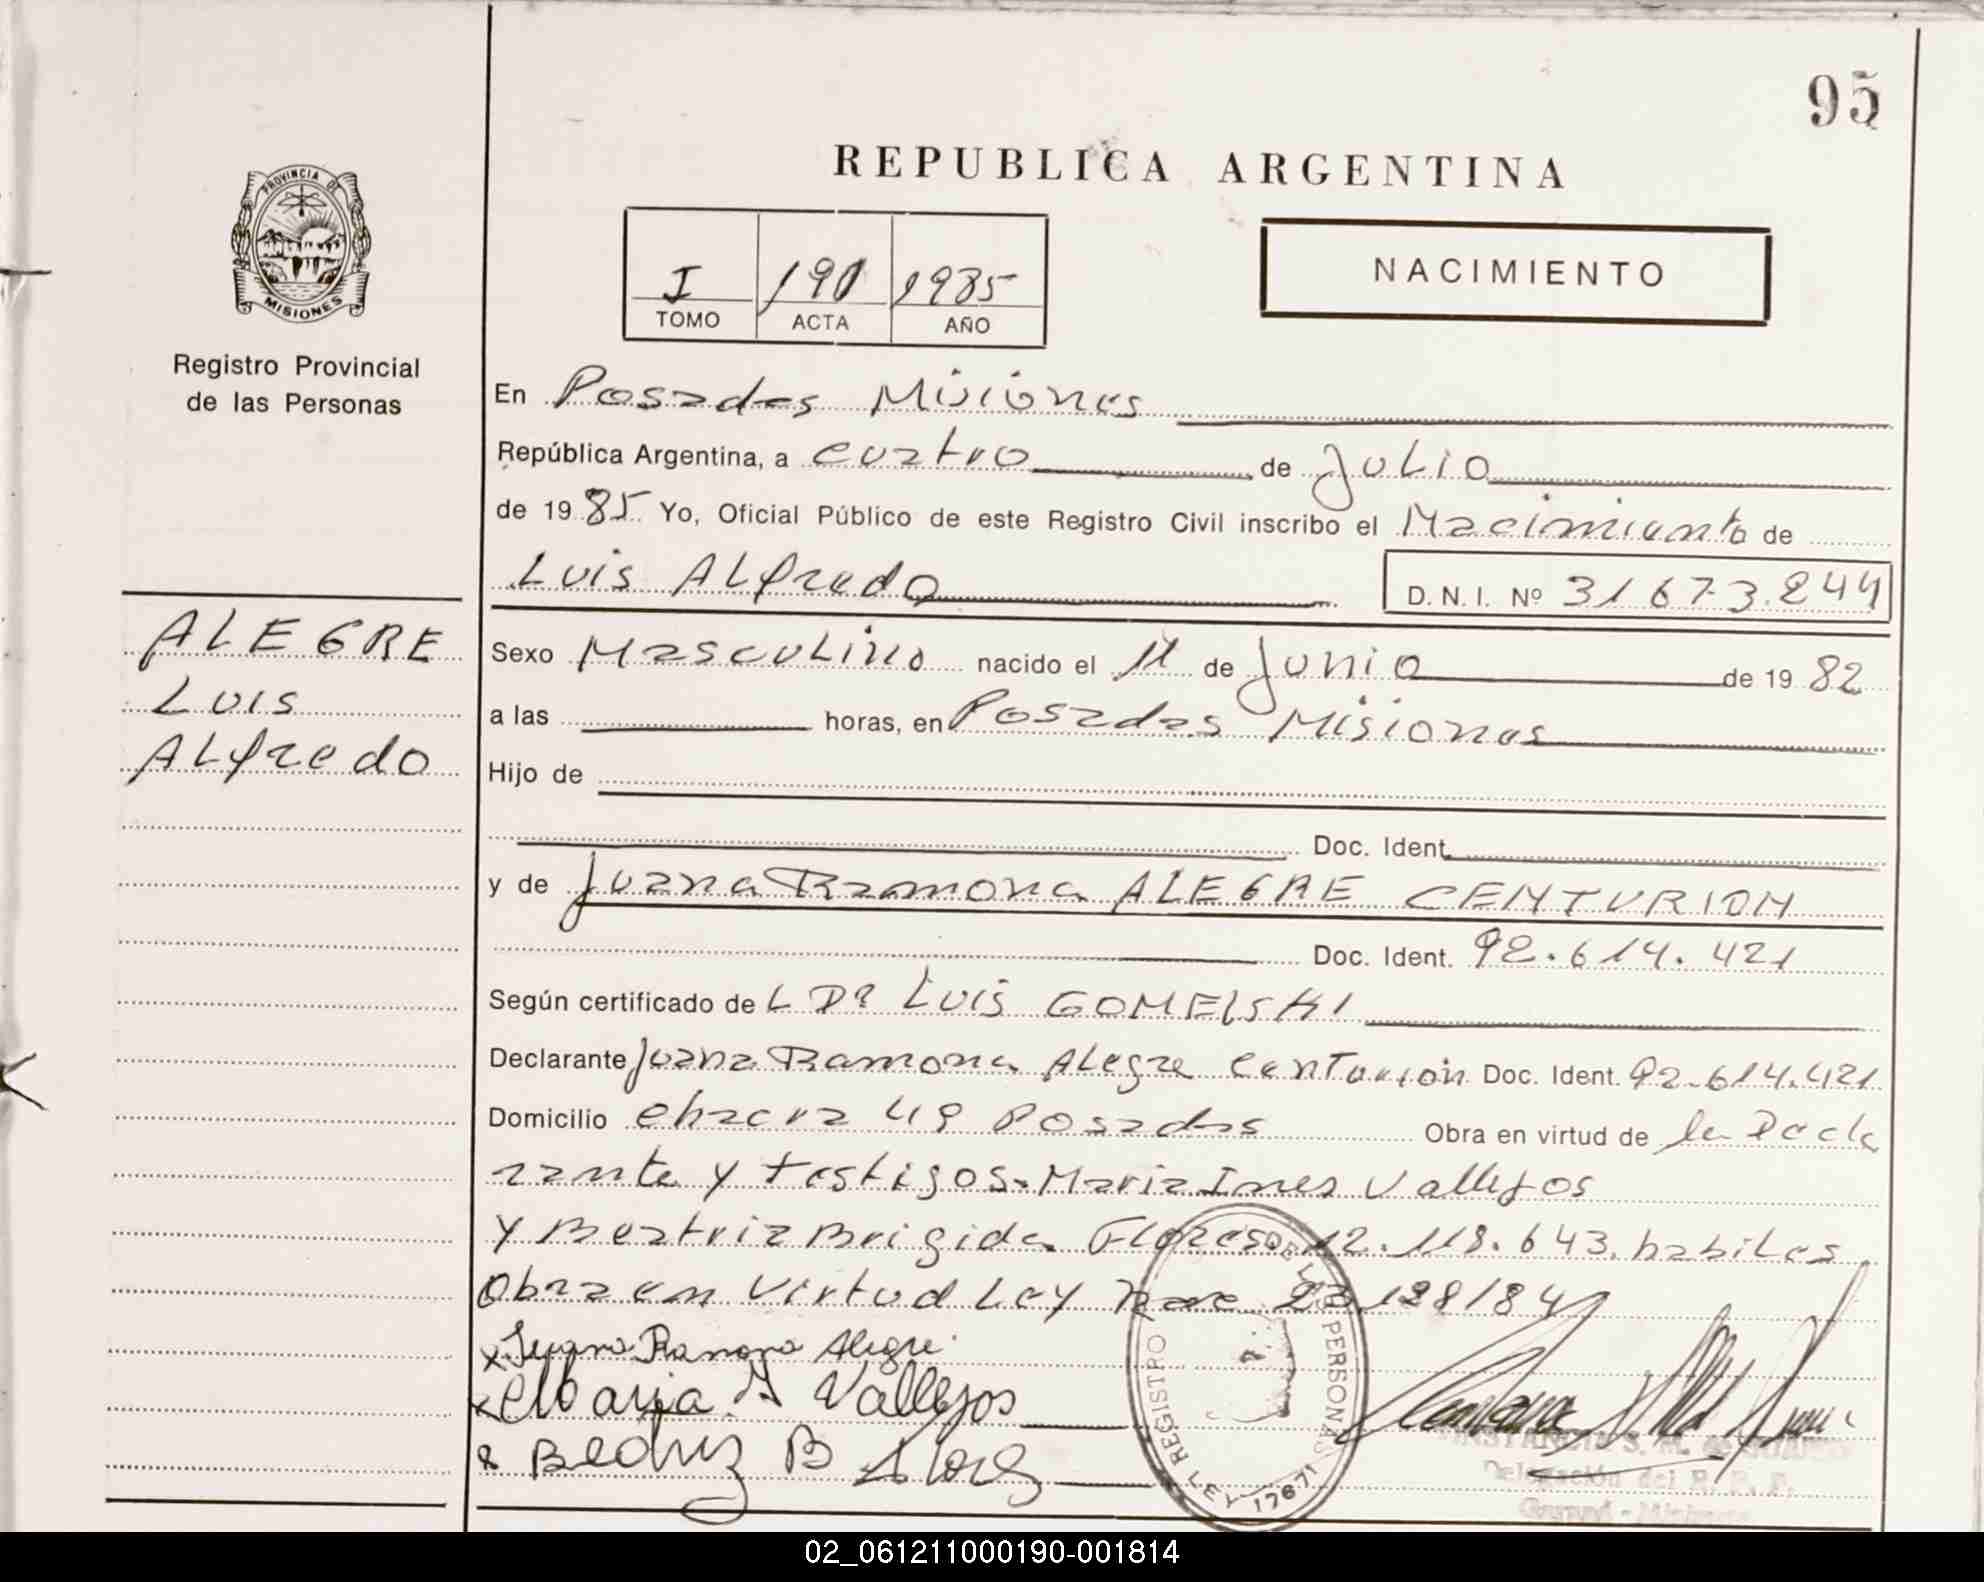 95
REPUBLICA ARGENTINA
PROVINCIA DE
MISIONES
Registro Provincial
de las Personas
I 190 1985
TOMO ACTA AÑO
NACIMIENTO
En Posadas Misiones
República Argentina, a cuatro de Julio
de 1985 Yo, Oficial Público de este Registro Civil inscribo el Nacimiento de
Luis Alfredo D. N. I. Nº 31673.244
ALEGRE
Luis
Alfredo
Sexo Masculino nacido el 11 de Junio de 1982
a las horas, en Posadas Misiones
Hijo de
Doc. Ident.
y de Juana Ramona ALEGRE CENTURION
Doc. Ident. 92.614.421
Según certificado de L Dr Luis GOMELSKI
Declarante Juana Ramona Alegre Centurión Doc. Ident. 92.614.421
Domicilio chacra 49 Posadas Obra en virtud de la Decla
rante y testigos. Maria Ines Vallejos
y Beatriz Brigida Flores 12.118.643. habiles
Obra en Virtud Ley 23.128/84
x Juana Ramona Alegre
x Maria I Vallejos
x Beatriz B Flores
REGISTRO DE LAS PERSONAS
LEY 17671
Delegación del R. P. P.
02_061211000190-001814